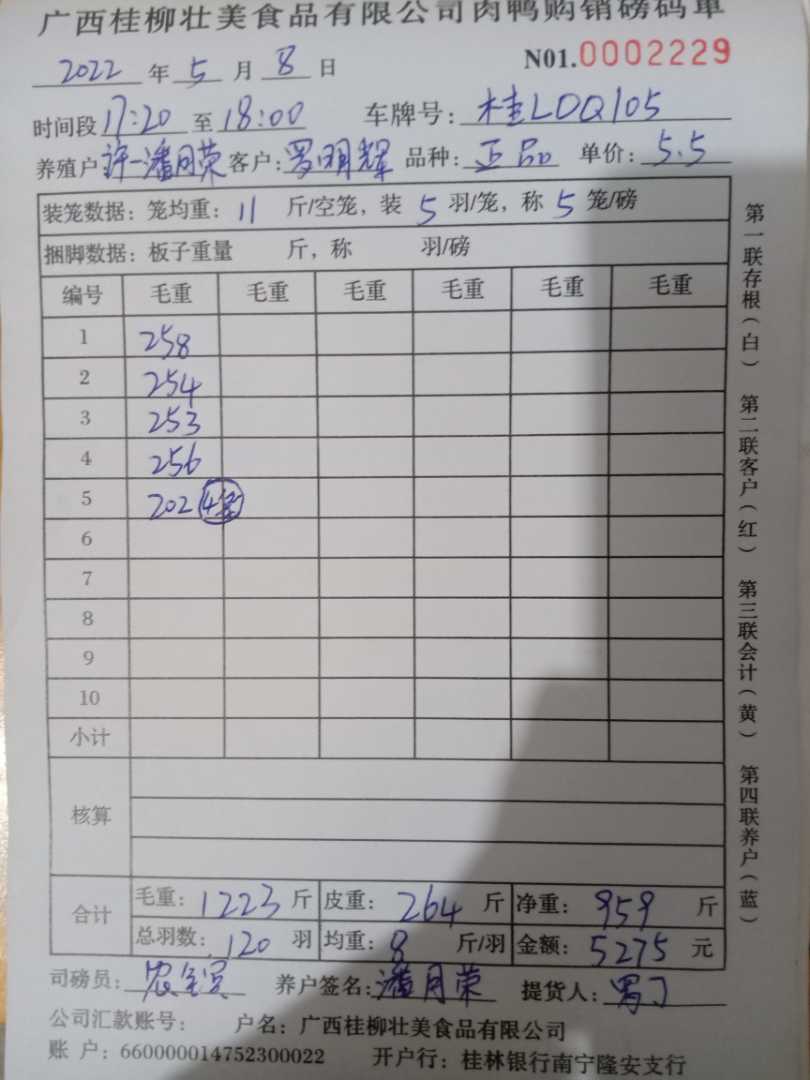 广西桂柳壮美食品有限公司肉鸭购销磅码单
2022 年 5 月 8 日 N01.0002229
时间段 17:20 至 18:00 车牌号: 桂LDQ105
养殖户: 许一潘月荣 客户: 罗明辉 品种: 正品 单价: 5.5
装笼数据: 笼均重: 11 斤/空笼, 装 5 羽/笼, 称 5 笼/磅
捆脚数据: 板子重量 斤, 称 羽/磅
编号 毛重 毛重 毛重 毛重 毛重 毛重
1 258
2 254
3 253
4 256
5 202 4笼
6
7
8
9
10
小计
核算
合计 毛重: 1223 斤 皮重: 264 斤 净重: 959 斤
总羽数: 120 羽 均重: 8 斤/羽 金额: 5275 元
司磅员: 养户签名: 潘月荣 提货人:
公司汇款账号: 户名: 广西桂柳壮美食品有限公司
账 户: 660000014752300022 开户行: 桂林银行南宁隆安支行
第一联存根(白) 第二联客户(红) 第三联会计(黄) 第四联养户(蓝)